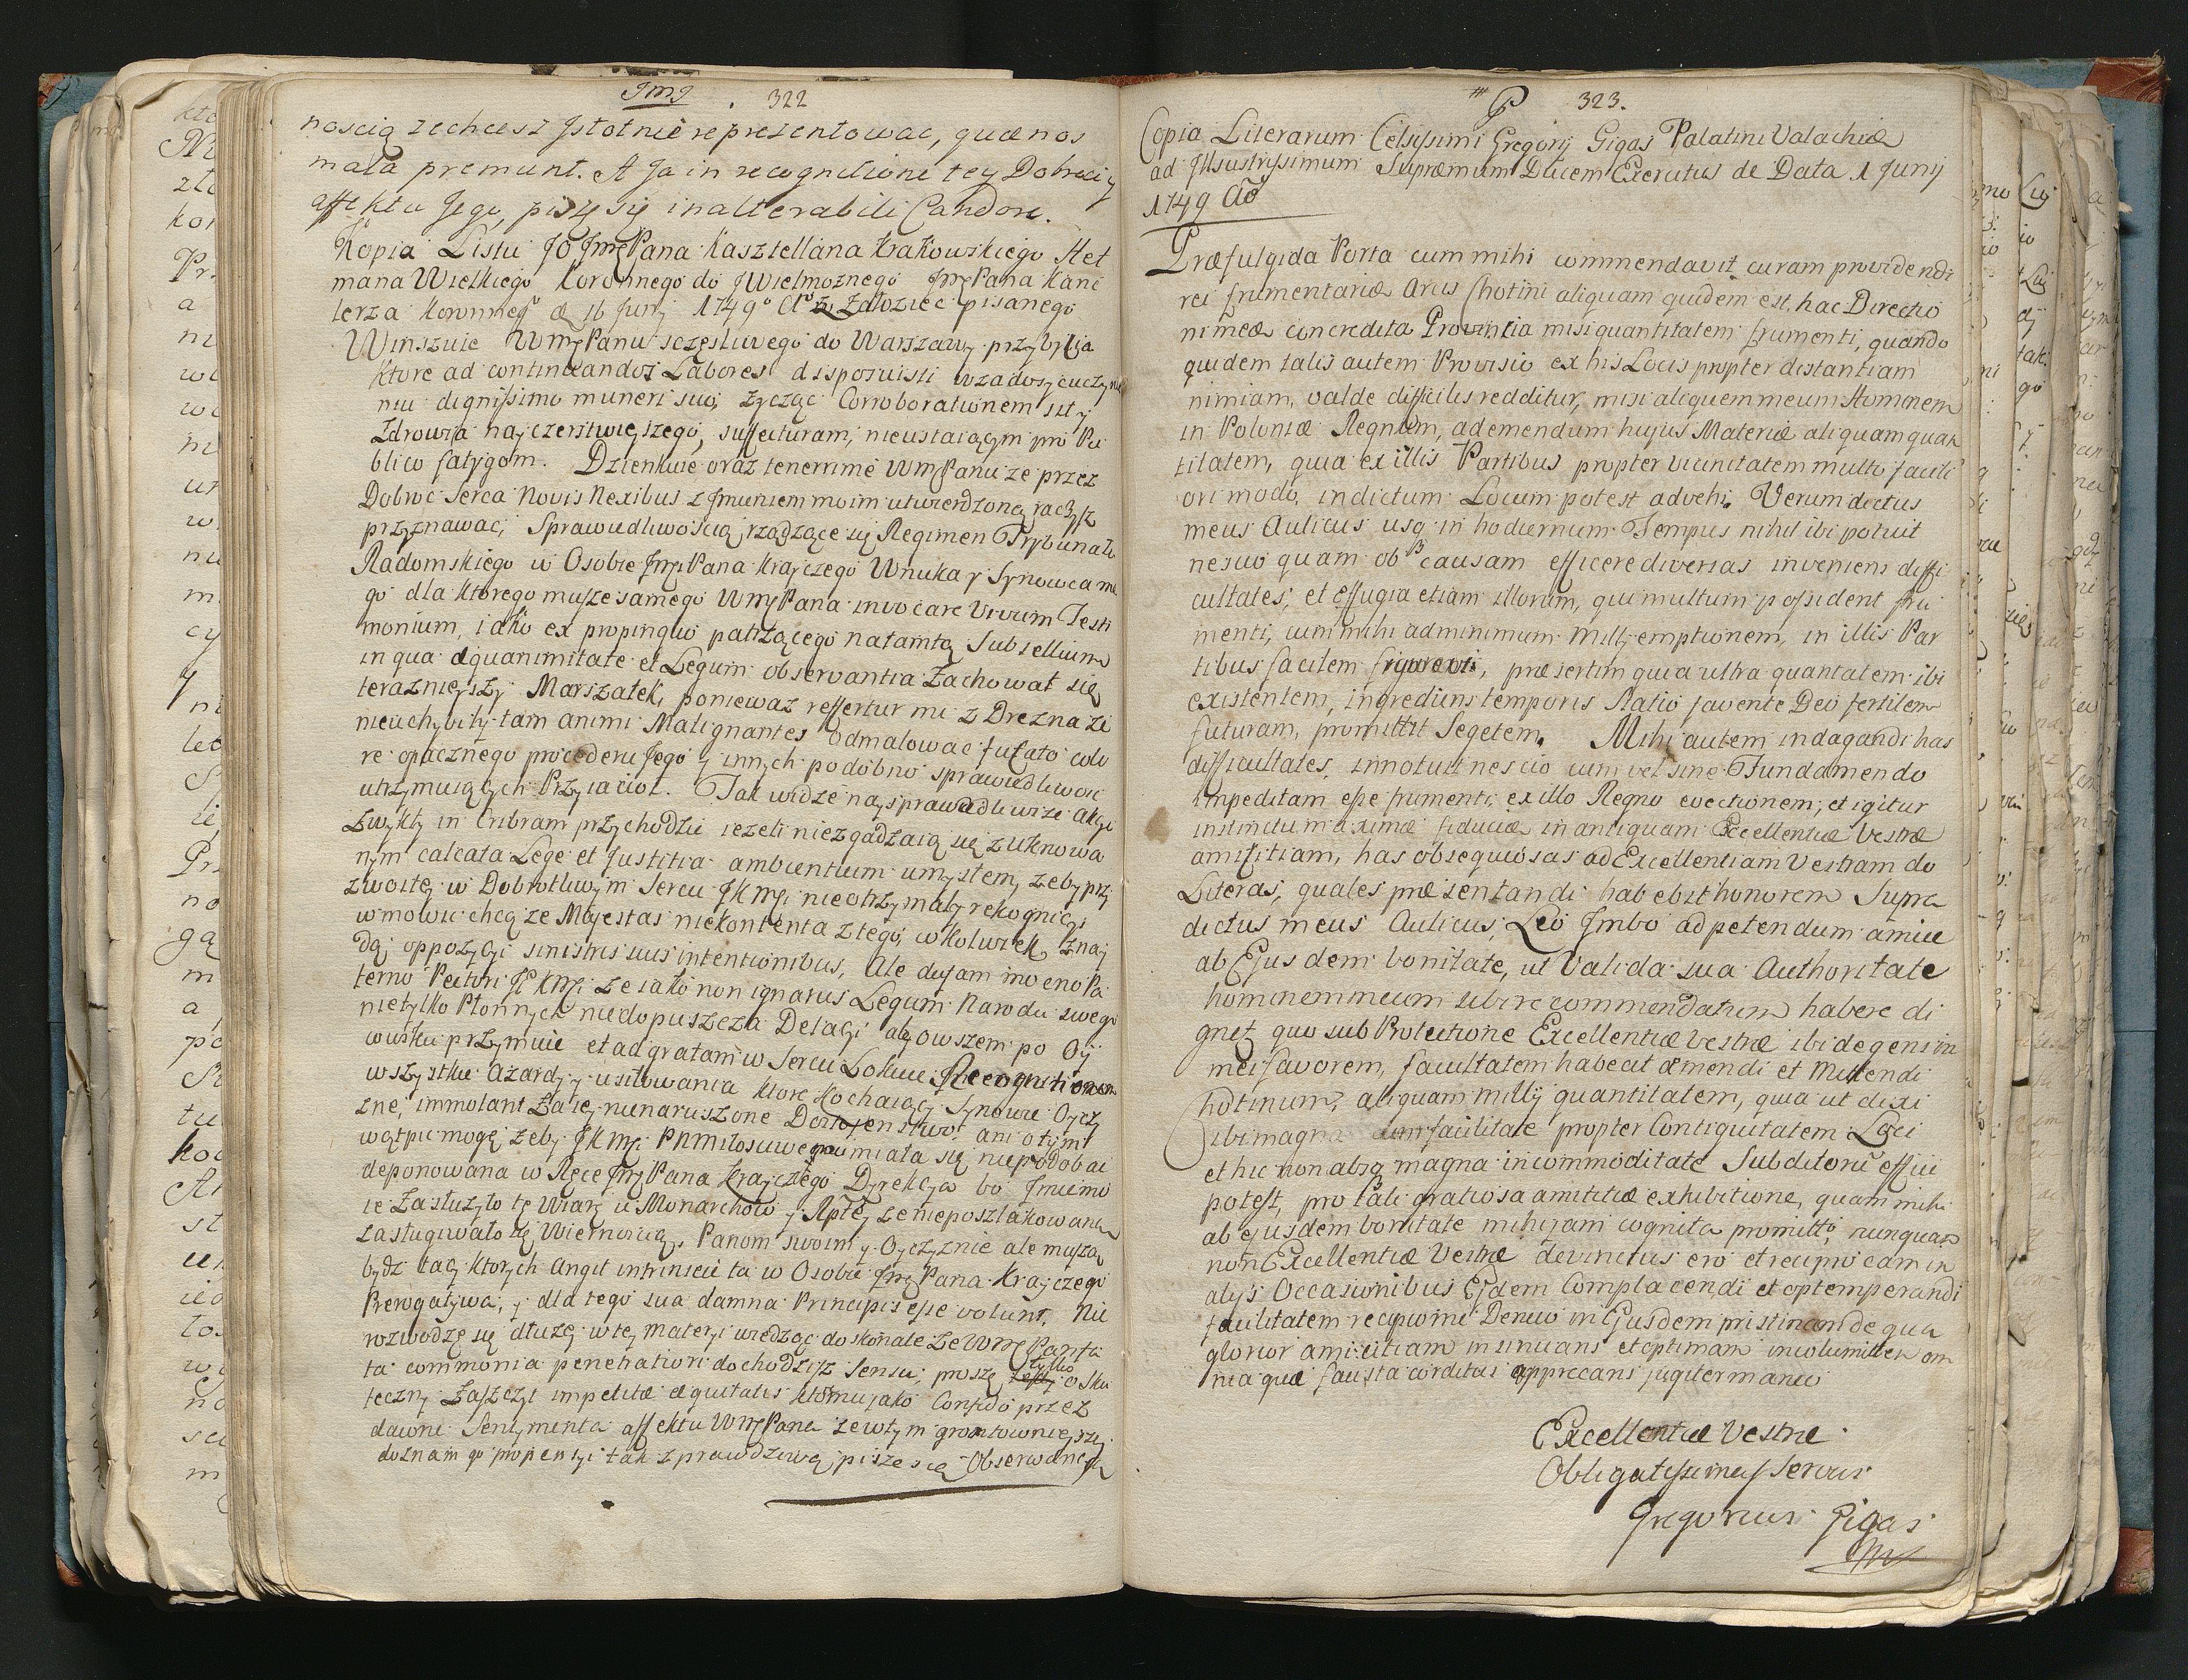 Jmg . 322
noscią zechcesz Jstotnie reprezentowac, quæ nos
mala premunt. A Ja in recognitione tey Dobroci y
affektu Jego, piszę się inalterabili Candore.
Kopia Listu JO JmꝭPana Kasztellana Krakowskiego Het
mana Wielkiego Koronnego do JWielmoznego JmꝭPana Kanc
lerza Koronneg° d 16 Junij 1749° A° z Załoziec pisanego
Winszuie WmꝭPanu sczęsliwego do Warszawy przybycia
ktore ad continuandos Labores disposuisti w zadosycuczynie
niu dignissimo muneri suo, zycząc Corroborationem sił y
Zdrowia nayczerstwieyszego, suffecturam, nieustaiącym pro Pu
blico fatygom. Dzienkuie oraz tenerrime WmꝭPanu ze przez
Dobroc Serca novis Nexibus z Jmieniem moim utwierdzoną raczysz
przyznawac, Sprawiedliwoscią rządzące się Regimen Trybunału
Radomskiego w Osobie JmꝭPana Krayczego Wnuka y Synowca me
go dla ktorego muszę samego WmꝭPana invocare Vivum Testi
monium, iako ex propinquo patrzącego na tamtą Subsellium
in qua æquanimitate et Legum observantia Zachował się
teraznieyszy Marszałek, poniewaz reffertur mi z Drezna ze
nieuchybiły tam animi Malignantes odmalowac fucato colo
re opacznego procederu Jego y innych podobno sprawiedliwosc
utrzymuiących Przyiacioł. Tak widzę naysprawiedliwsze akcye
Zwykły in Cribram przychodzic iezeli niezgadzaią się z uknowa
nym calcata Lege et Justitia ambientium umysłem, zeby przy
zwoitey w Dobrotliwym Sercu JKMꝭi nieotrzymały rekognicyi
wmowic chcą ze Majestas niekontenta z tego, w kolwiek znay
dą oppozycyi sinistris suis intentionibus, Ale dufam imo eno Pa
terno Pectori JKMꝭi ze iako non ignarus Legum Narodu swego
nietylko Płonnych niedopuszcza Delacyi ale owszem po Oy
cowsku przymuie et ad gratam w Sercu Lokuie Recognitionem
wszystkie Azardy y usiłowania ktore kochaiący Synowie Oyczy
znę, immolant Za iey nienaruszone Dostoyenstwo; ani o tym
wątpic mogę zeby JKMꝭi PNMiłosciwego miała się niepodobac
deponowana w Ręce JmꝭPana Krayczego Dyrekcya bo Jmie mo
ie Zasłuzyło tę Wiarę u Monarchow y Rptey ze nieposzlakowaną
zasługiwało się Wiernoscią, Panom swoim y Oyczyznie ale muszą
bydz tacy ktorych angit intrinsece ta w Osobie JmꝭPana Krayczego
Prerogatywa, y dla tego sua damna Principis esse volunt. Nie
rozwodzę się dłuzey w tey materyi wiedząc doskonale ze WmꝭPan ta
ta commonia penetratiori dochodzisz Sensu; proszę tylko o sku
teczny Zaszczyt impetitæ æquitatis ktoremu jako Confido przez
dawne Sentymenta affektu WmꝭPana ze w tym grontownieyszey
doznam go propensyi tak z prawdziwą piszę się Obserwancyą
P 323.
Copia Literarum Celsissimi Gregorij Gigas Palatini Valachiæ
ad Illustrissimum Supræmum Ducem Exercitus de Data 1 Junij
1749 Aō
Præfulgida Porta cum mihi commendavit curam providendi
rei frumentariæ Arcis Chotini aliquam quidem est, hac Directio
ni meæ concredita Provincia misi quantitatem frumenti, quando
quidem talis autem Provisio ex his Locis propter distantiam
nimiam, valde difficilis redditur, misi aliquem meum Hominem
in Poloniæ Regnum, ad emendum hujus Materiæ aliquam quan
titatem, quia ex illis Partibus propter vicinitatem multo facili
ori modo, in dictum Locum potest advehi. Verum dictus
meus Aulicus usq; in hodiernum Tempus nihil ibi potuit
nescio quam ob causam efficere diversas inveniens diffi
cultates, et effugia etiam illorum, qui multum possident fru
menti, cum mihi ad minimum Millij emptionem, in illis Par
tibus facilem, præsertim quia ultra quantatem ibi
existentem, ingrediens temporis Statio favente Deo fertilem
futuram, promittit Segetem. Mihi autem indagandi has
difficultates, innotuit nescio cum vel sine Fundamendo
impeditam esse frumenti, ex illo Regno evectionem; et igitur
instinctu maximæ fiduciæ in antiquam Excellentiæ Vestræ
amicitiam, has obsequiosas ad Excellentiam Vestram do
Literas, quales præsentandi habebit honorem Supra
dictus meus Aulicus, Leo Jmbo ad petendum amice
ab Ejusdem bonitate, ut Valida sua Authoritate
hominem meum sibi recommendatum habere di
gnetꝫ quo sub Protectione Excellentiæ Vestræ ibi degens in
mei favorem, facultatem habeat æmendi et Mittendi
Chotinum, aliquam millij quantitatem, quia ut dixi
ibi magna cum facilitate propter Contiguitatem Loci
et hic non absq; magna incommoditate Subditorū effici
potest, pro tali gratiosa amicitiæ exhibitione, quam mihi
ab ejusdem bonitate mihi jam cognita promitto, nunquam
non Excellentiæ Vestræ devinctus ero et reciprocam in
alijs Occasionibus Ejdem Complacendi et optemperandi
facilitatem recipromi Denuo in Ejusdem pristinam de qua
glorior amicitiam insinuans et optimam incolumitatem om
nia quæ fausta corditus apprecans jugiter maneo
Excellentiæ Vestræ
Obligatissimus Servus
Gregorius Gigas